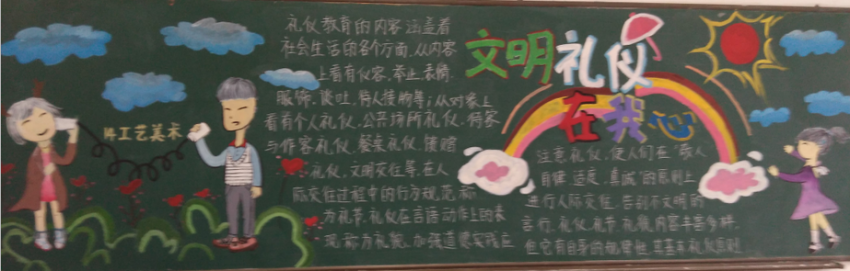 文明礼仪
在我心
14工艺美术
礼仪教育的内容涵盖着
社会生活的各个方面.从内容
上看有仪容、举止、表情、
服饰、谈吐、待人接物等;从对象上
看有个人礼仪、公共场所礼仪、待客
与作客礼仪、餐桌礼仪、馈赠
礼仪、文明交往等.在人
际交往过程中的行为规范称
为礼节,礼仪在言语动作上的表
现称为礼貌.加强道德实践应
注意礼仪,使人们在"敬人、
自律、适度、真诚"的原则上
进行人际交往,告别不文明的
言行.礼仪、礼节、礼貌内容丰富多样,
但它有自身的规律性,其基本礼仪原则